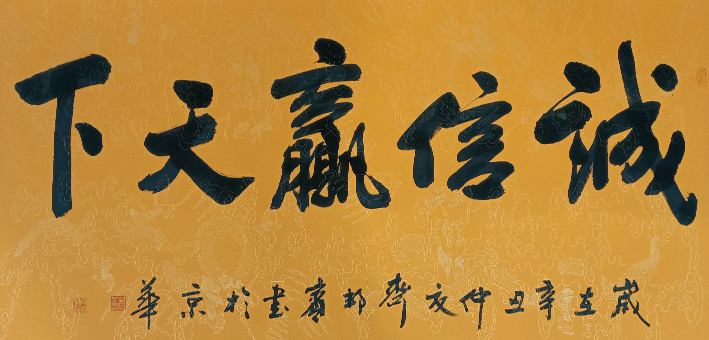 誠信贏天下
歲在辛丑仲夏齊邦賓書於京華